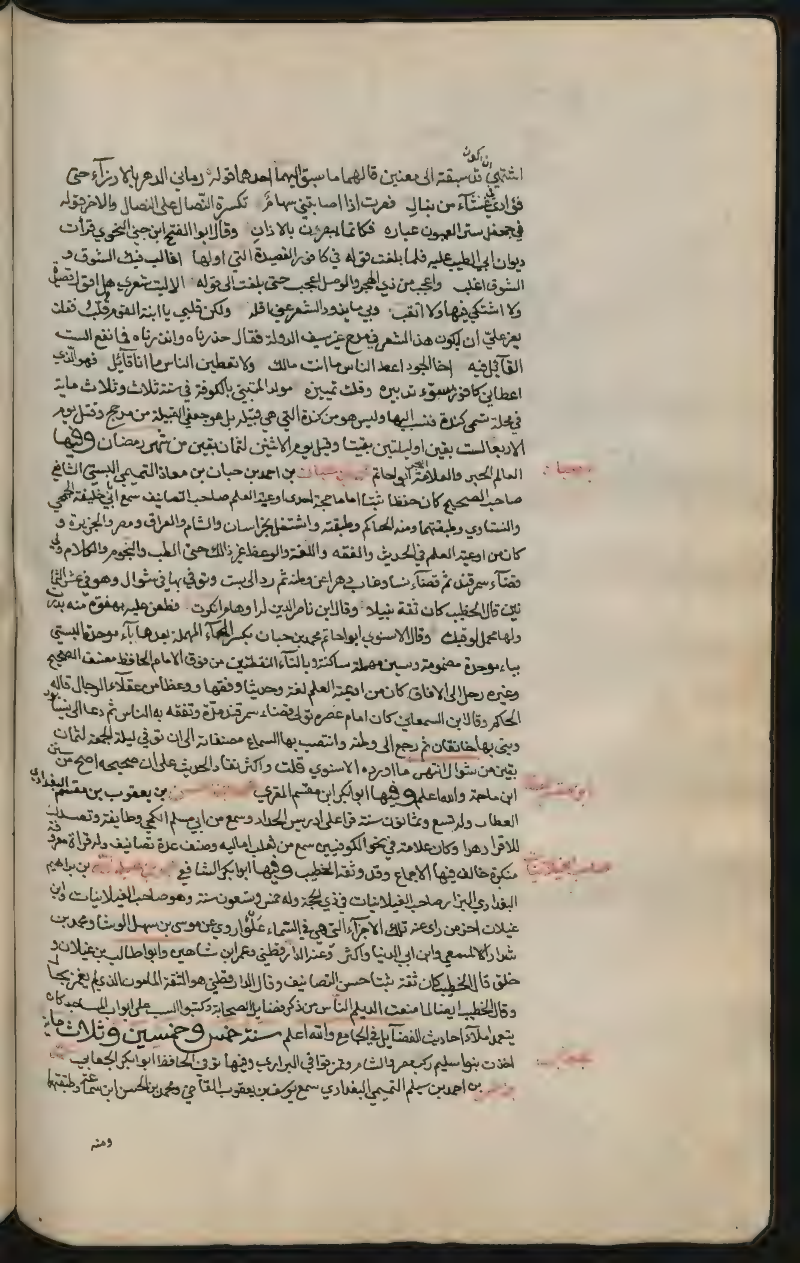 ان اكون
اشتهي قد سبقته الى معنيين قالهما ما سبق اليهما احدهما قوله رماني الدهر بالارزآء حتى
فؤادي في غشآء من نبال فصرت اذا اصابتني سهام تكسرت النصال على النصال والاخر قوله
في جحفل ستر العيون غباره فكانما يبصرن بالاذان وقال ابو الفتح ابن جني النحوي قرأت
ديوان ابي الطيب عليه فلما بلغت قوله في كافور القصيدة التي اولها اغالب فيك الشوق و
الشوق اغلب واعجب من ذي الهجر والوصل اعجب حتى بلغت الى قوله الا ليت شعري هل اقول قصيدة
ولا اشتكي فيها ولا اتعب وبي ما يذود الشعر عني اقله ولكن قلبي يا ابنة القوم قلب فقلت
يعز علي ان يكون هذا الشعر في مدح غير سيف الدولة فقال حذرناه وانذرناه فما نفع الست
القآئل فيه اخا الجود اعط الناس ما انت مالك ولا تعطين الناس ما انا قآئل فهو الذي
اعطاني كافور بسوء تدبيره وقلة تمييزه مولد المتنبي بالكوفة في سنة ثلاث وثلاث ماية
في محلة تسمى كندة فنسب اليها وليس هو من كندة التي هي قبيلة بل هو جعفي القبيلة من مذحج وقتل يوم
الاربعا لست بقين او ليلتين بقيتا وقيل يوم الاثنين لثمان بقين من شهر رمضان وفيها
العالم الحبر والعلامة البحر ابو حاتم محمد بن حبان بن احمد بن حبان بن معاذ التميمي البستي الشافعي
صاحب الصحيح كان حفظا ثبتا اماما حجة احد اوعية العلم صاحب التصانيف سمع ابي خليفة الجمحي
والنسآوي وطبقتهما ومنه الحاكم وطبقته واشتغل بخراسان والشام والعراق ومصر والجزيرة و
كان من اوعية العلم في الحديث والفقه واللغة والوعظ وغير ذلك حتى الطب والنجوم والكلام ولي
قضآء سمرقند ثم قضآء نسا وغاب دهرا عن وطنه ثم رد الى بست وتوفي بها في شوال وهو في عشر الثما
نين قال الخطيب كان ثقة نبيلا وقال ابن ناصر الدين له اوهام انكرت فطعن عليه بهفوة منه بدرت
ولها محمل لو قبلت وقال الاسنوي ابو حاتم محمد بن حبان بكسر الحآء المهملة بعدها بآء موحدة البستي
بباء موحدة مضمومة وسين مهملة ساكنة وبالتآء النقطتين من فوق الامام الحافظ مصنف الصحيح
وغيره رحل الى الافاق كان من اوعية العلم لغة وحديثا وفقها ووعظا من عقلاء الرجال قاله
الحاكم وقال ابن السمعاني كان امام عصره تولى قضاء سمرقند مدة وتفقه به الناس ثم دعا الى نيسابور
وبنى بها خانقاه ثم رجع الى وطنه وانتصب بها لسماع مصنفاته الى ان توفي ليلة الجمعة لثمان
بقين من شوال انتهى ما اورده الاسنوي قلت واكثر نقاد الحديث على ان صحيحه اصح من سنن
ابن ماجة والله اعلم وفيها ابو بكر ابن مقسم المقري محمد بن الحسن بن يعقوب بن مقسم البغدادي
العطار وله تسع وثمانون سنة قرا على ادريس الحداد وسمع من ابي مسلم الكجي وطايفة وتصدر
للاقرا دهرا وكان علامة في نحو الكوفيين سمع من ثعلب اماليه وصنف عدة تصانيف وله قراة معروفة
منكرة خالف فيها الاجماع وقد وثقه الخطيب وفيها ابو بكر الشافعي محمد بن عبد الله بن ابراهيم
البغدادي البزاز صاحب الغيلانيات في ذي الحجة وله خمس وتسعون سنة وهو صاحب الغيلانيات وابن
غيلان اخر من روى عنه تلك الاجزآء التي هي في السماء علوا روى عن موسى بن سهل الوشا ومحمد بن
شداد المسمعي وابن ابي الدنيا واكثر وعنه الدارقطني وعمر ابن شاهين وابو طالب بن غيلان و
خلق قال الخطيب كان ثقة ثبتا حسن التصانيف وقال الدارقطني هو الثقة المامون الذي لم يغمز بحال
وقال الخطيب ايضا لما منعت الديلم الناس من ذكر فضايل الصحابة وكتبوا السب على ابواب المساجد كان
يتعمد املآء احاديث الفضآيل في الجامع والله اعلم سنة خمس وخمسين وثلاث ماية
اخذت بنو سليم ركب مصر والشام وتمزقوا في البراري وفيها توفي الحافظ ابو بكر الجعابي محمد
بن عمر بن احمد بن سليم التميمي البغدادي سمع يوسف بن يعقوب القاضي ومحمد بن الحسن ابن سماعة وطبقتهما
ومنه
ابن حبان
ابن مقسم
صاحب الغيلانيات
الجعابي